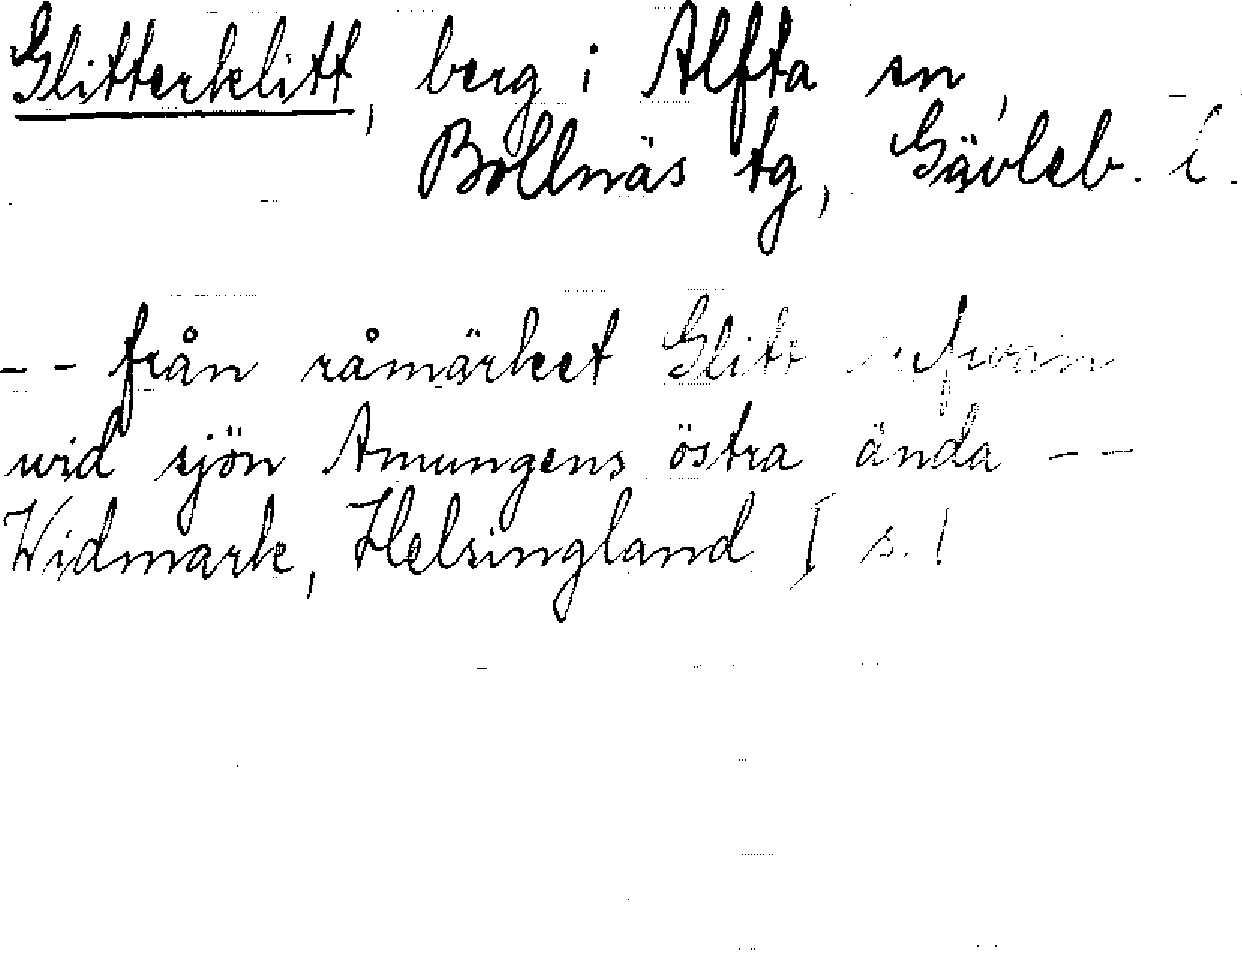 Glitterklitt, berg i Alfta sn,
Bollnäs tg, Gävleb. l.
-- från råmärket Glitt
wid sjön Amungens östra ända --
Widmark, Helsingland I s. 1